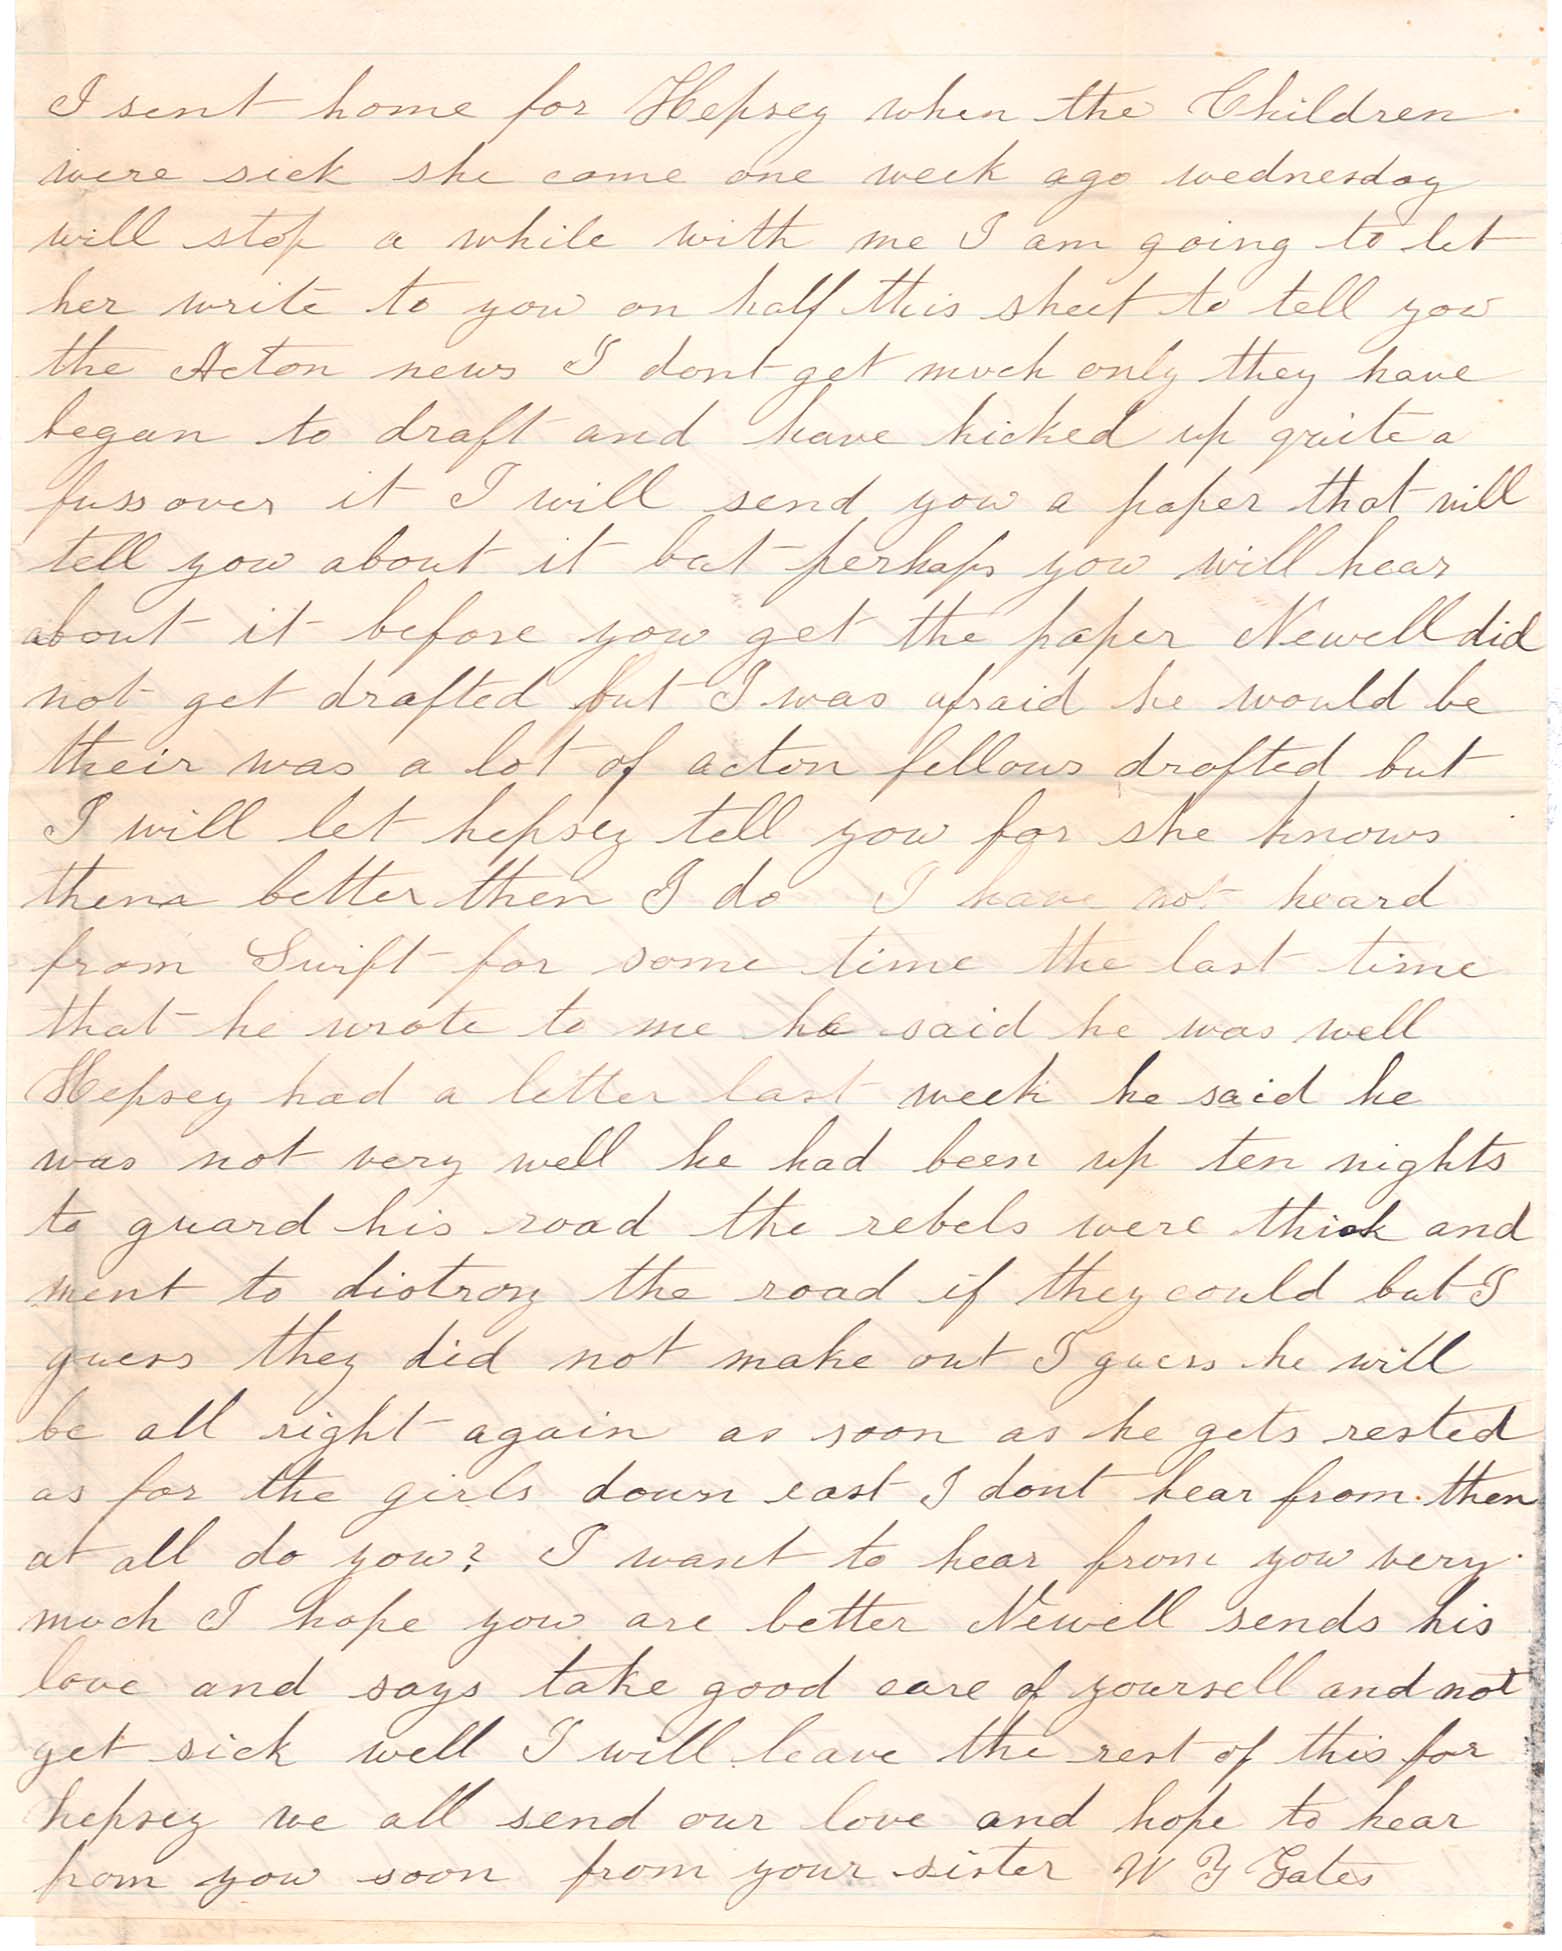 I sent home for Hepsey when the Children
were sick she come one week ago wednesday
will stop a while with me I am going to let
her write to you on half this sheet to tell you
the Acton news I dont get much only they have
began to draft and have kicked up quite a
fuss over it I will send you a paper that will
tell you about it but perhaps you will hear
about it before you get the paper Newell did
not get drafted but I was afraid he would be
their was a lot of acton fellows drafted but
I will let hepsey tell you for she knows
them better then I do I have not heard
from Swift for some time the last time
that he wrote to me he said he was well
Hepsey had a letter last week he said he
was not very well he had been up ten nights
to guard his road the rebels were thick and
ment to distroy the road if they could but I
guess they did not make out I guess he will
be all right again as soon as he gets rested
as for the girls down east I dont hear from then
at all do you? I want to hear from you very
much I hope you are better Newell sends his
love and says take good care of yoursell and not
get sick well I will leave the rest of this for
hepsey we all send our love and hope to hear
from you soon from your sister W F Gates